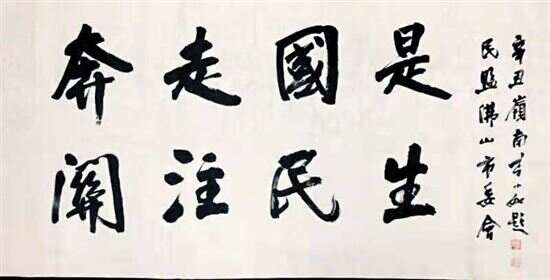 奔走國是
關注民生
辛丑嶺南李小如題
民盟佛山市委會